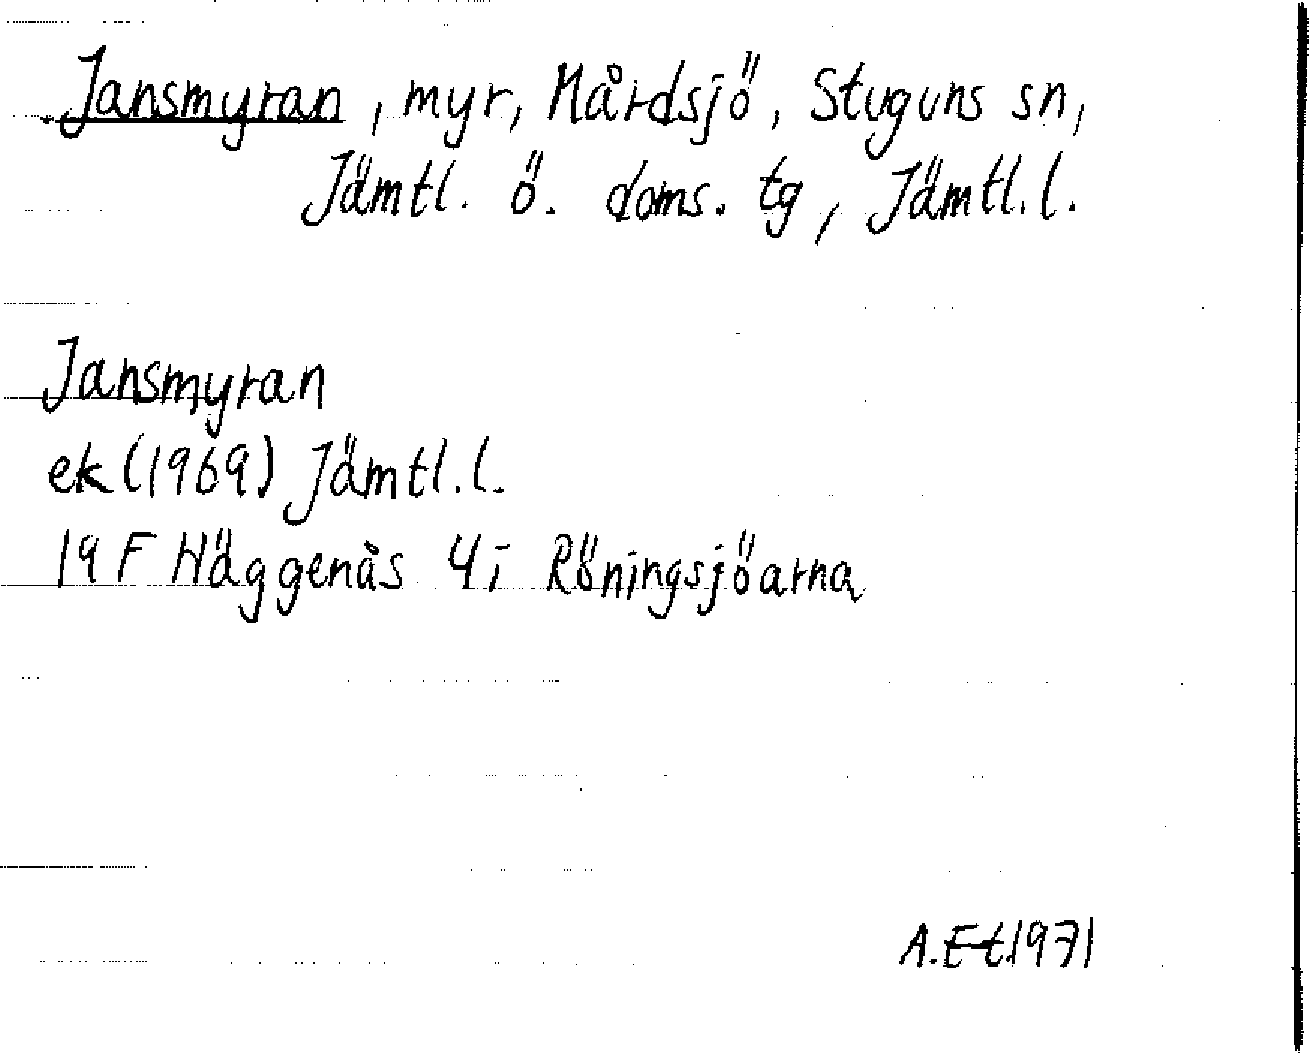 Jansmyran, myr, Mårdsjö, Stuguns sn,
Jämtl. ö. doms. tg, Jämtl.l.
Jansmyran
ek (1969) Jämtl.l.
19 F Häggenås 4i Röningsjöarna
A.E-t.1971